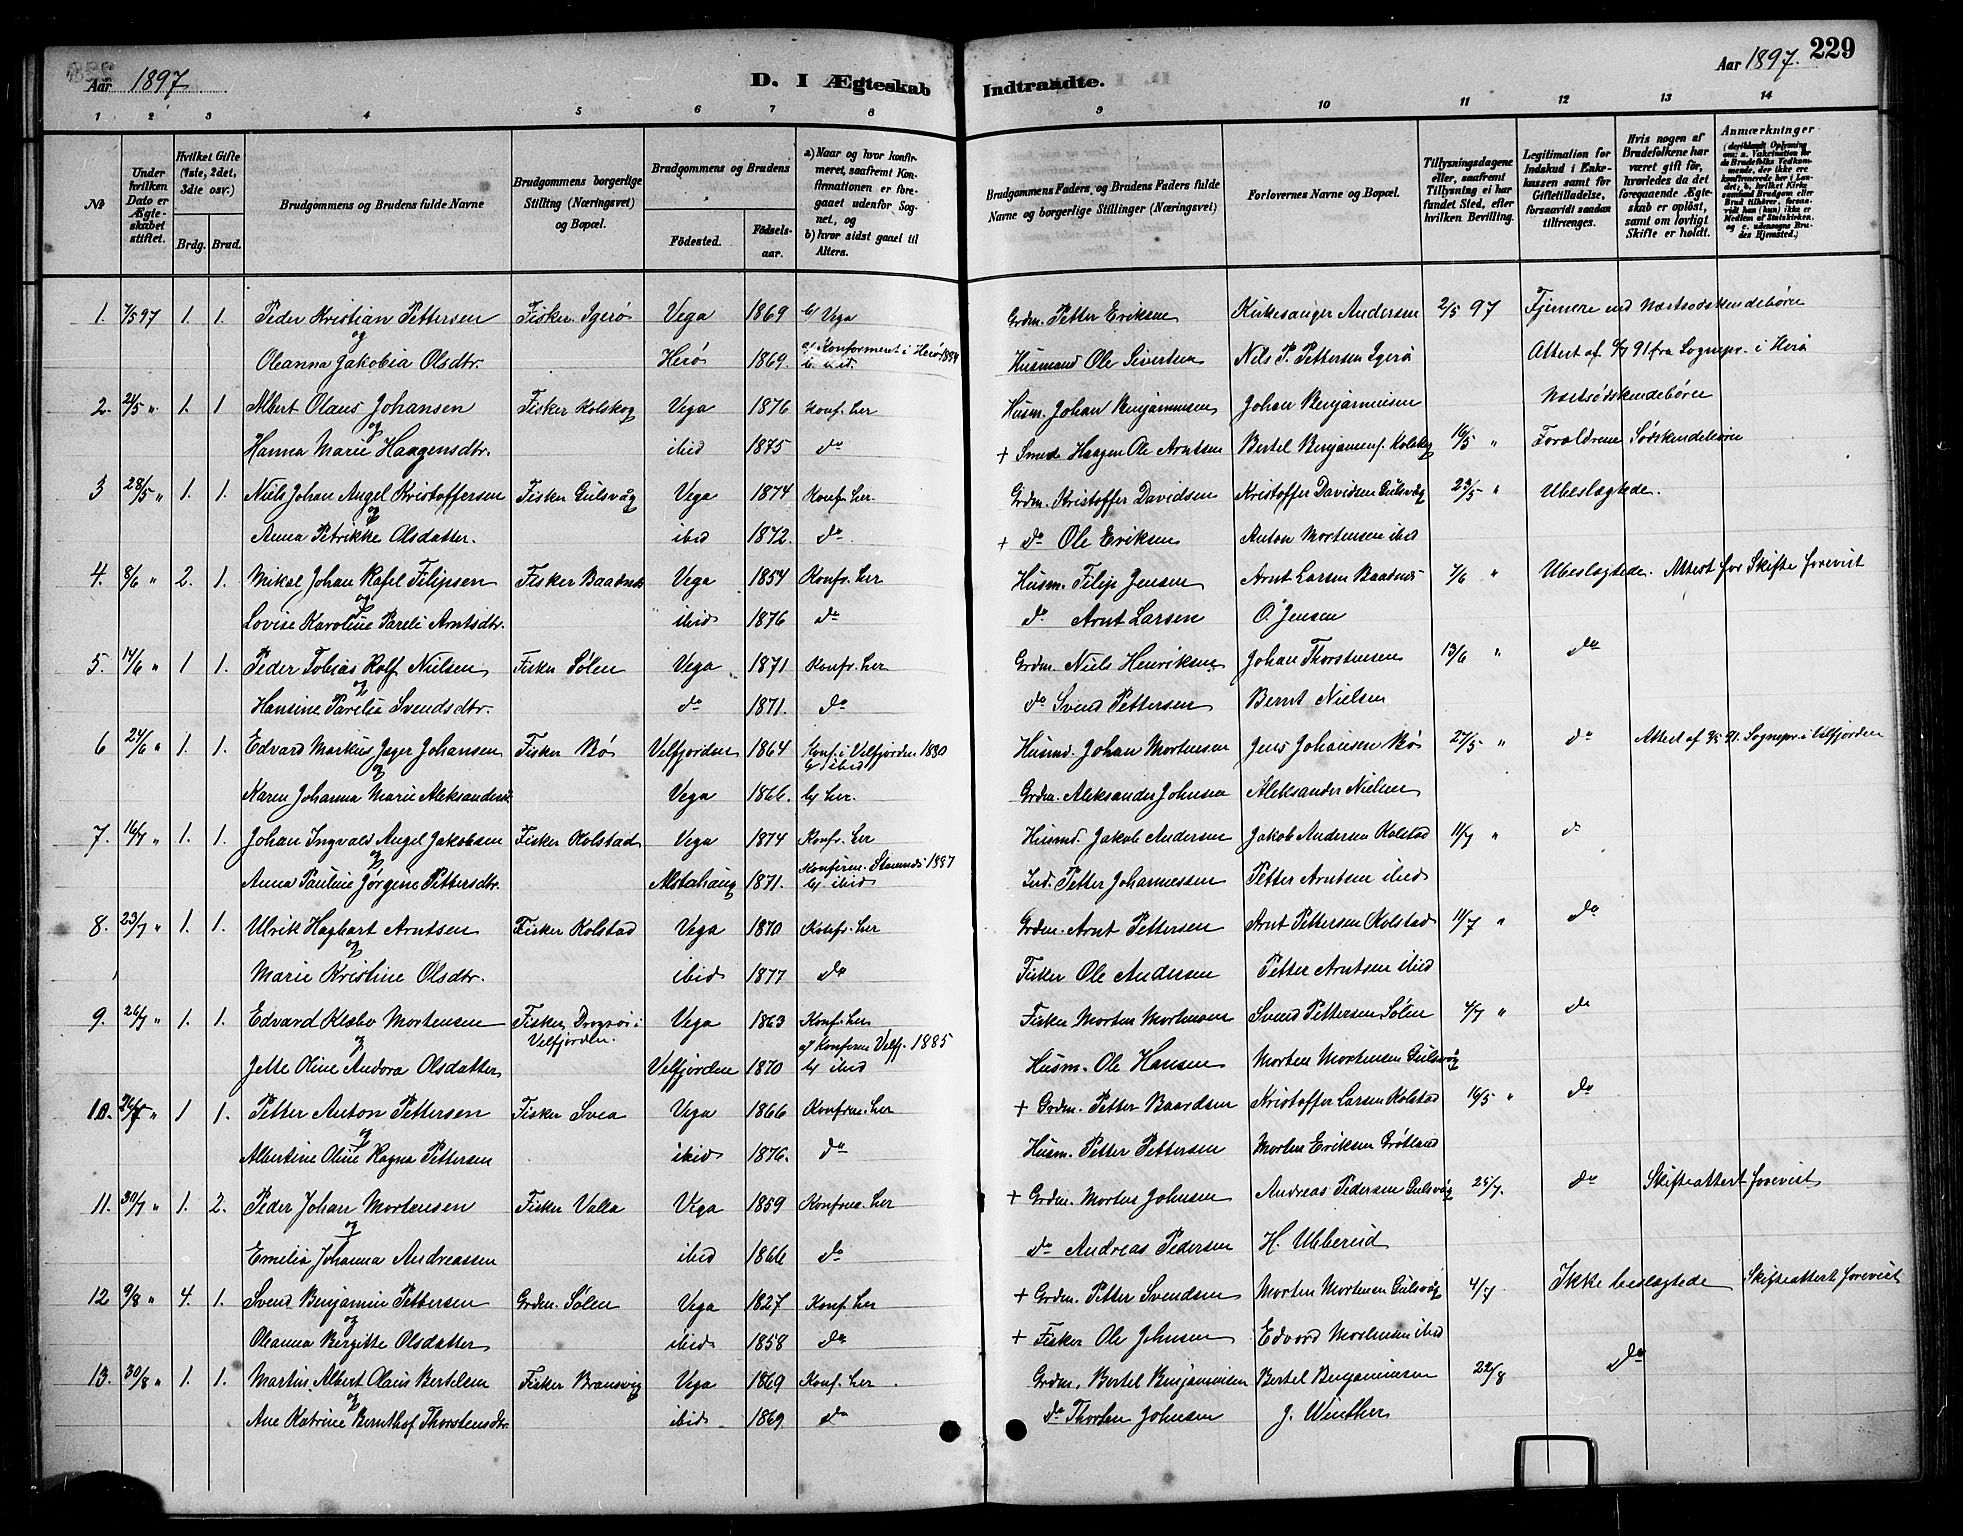 Aar 1897 D. I Ægteskab Indtraadte. Aar 1897. 229
1 2 3 4 5 6 7 8 9 10 11 12 13 14
No
Under hvilken Dato er Ægteskabet stiftet.
Hvilket Gifte (1ste, 2det, 3die osv.)
Brdg. Brud.
Brudgommens og Brudens fulde Navne
Brudgommens borgerlige Stilling (Næringsvei) og Bopæl.
Brudgommens og Brudens
Födested. Födselsaar.
a) Naar og hvor konfirmeret, saafremt Konfirmationen er foregaaet udenfor Sognet, og
b) hvor sidst gaaet til Alters.
Brudgommens Faders og Brudens Faders fulde Navne og borgerlige Stillinger (Næringsvei)
Forlovernes Navne og Bopæl.
Tillysningsdagene eller, saafremt Tillysning ei har fundet Sted, efter hvilken Bevilling.
Legitimation for Indskud i Enkekassen samt for Giftetilladelse, forsaavidt saadan tiltrænges.
Hvis nogen af Brudefolkene har været gift för, hvorledes da det foregaaende Ægteskab er oplöst, samt om lovligt Skifte er holdt.
Anmærkninger (deriblandt Oplysning om: a. Vakcination for de Brudefolks Vedkommende, der ikke ere konfirmerede her i Landet; b. hvilket Kirkesamfund Brudgom eller Brud tilhörer, forsaavidt han (hun) ikke er Medlem af Statskirken, og c. udensogns Brudes Hjemsted.)
1. 7/5 97 1. 1. Peder Kristian Pettersen Fisker Igerø Vega 1869 b/ Vega Grdm. Petter Eriksen Kirkesanger Andersen 2/5 97 Fjernere end Næstsødskendebörn
og
Oleanna Jakobia Olsdtr. Herø 1869. a/ Konfirmeret i Herø 1884 b. ibid. Husmand Ole Sivertsen Nils P. Pettersen Igerö Attest af 91 fra Sognepr. i Herö
2. 24/5 " 1. 1 Albert Olaus Johansen Fisker Kolskog Vega 1876 Konf. her Husm. Johan Benjaminsen Johan Benjaminsen Næstsødskendebörn
og
Hanna Marie Haagensdtr. ibid 1875 do + Smed Haagen Ole Arntsen Bertel Benjaminsen Kolskog 16/5 " Forældrene Södskendebörn
3 28/5 " 1. 1. Niels Johan Angel Kristoffersen Fisker Gulsvåg Vega 1874 Konf. her Grdm. Kristoffer Davidsen Kristoffer Davidsen Gulsvåg 23/5 " Ubeslægtede.
og
Anna Petrikke Olsdatter. ibid 1872. do + do Ole Eriksen Anton Mortensen ibid
4. 8/6 " 2. 1. Mikal Johan Rafel Filipsen Fisker Baadnes Vega 1854 Konfr. her Husm. Filip Jensen Arnt Larsen Baadnes 7/6 " Ubeslægtede. Attest for Skifte forevist
og
Lovise Karoline Pareli Arntsdtr. ibid 1876 do do Arnt Larsen O. Jensen
5. 14/6 " 1 1. Peder Tobias Rolf Nielsen Fisker Sølen Vega 1871 Konfr. her Grdm. Niels Henriksen Johan Thorstensen 13/6 " do
og
Hansine Parelia Svendsdtr. do 1871. do do Svend Pettersen Bernt Nielsen
6 24/6 " 1. 1. Edvard Markus Jager Johansen Fisker Bø Velfjorden 1864 Konf. i Velfjorden 1880 b/ ibid Husmd. Johan Mortensen Jens Johansen Bø 27/5 " do Attest af Sognepr. i Velfjorden
og
Karen Johanna Marie Aleksandersd. Vega 1866. b/ her. Grdm. Aleksander Johnsen Aleksander Nielsen
7. 16/7 " 1. 1. Johan Ingvald Angel Jakobsen Fisker Kolstad Vega 1874 Konfr. her Husmd. Jakob Andersen Jakob Andersen Kolstad 11/7 " do
og
Anna Pauline Jørgine Pettersdtr. Alstahaug 1871. Konfirm. Stamnes 1887 b/ ibid Ind. Petter Johannessen Petter Arntsen ibid
8. 23/7 " 1. 1. Ulrik Hagbart Arntsen Fisker Kolstad Vega 1870 Konfr. her Grdm. Arnt Pettersen Arnt Pettersen Kolstad 11/7 " do
og
Marie Kristine Olsdtr. ibid 1877 do Fisker Ole Andersen Petter Arntsen ibid
9. 26/7 " 1. 1. Edvard Klæbo Mortensen Fisker Dragsøi i Velfjorden. Vega 1863 Konf. her Fisker Morten Mortensen Svend Pettersen Sølen 4/7 " do
og
Jette Oline Andora Olsdatter Velfjorden 1870 a/ Konfirm Velfj. 1885 b/ ibid Husm. Ole Hansen Morten Mortensen Gulsvåg
10. 26/7 " 1 1. Petter Anton Pettersen Fisker Svea Vega 1866 Konfirm. her + Grdm. Petter Baardsen Kristoffer Larsen Kolstad 16/5 " do
og
Albertine Oline Ragna Pettersen ibid 1876. do Husm. Petter Pettersen Morten Eriksen Grötland
11. 30/7 " 1. 2. Peder Johan Mortensen Fisker Valla Vega 1859 Konfirm. her + Grdm. Morten Johnsen Andreas Pedersen Gulsvåg 25/7. do Skifteattest forevist
og
Emelia Johanna Andreassen ibid 1866 do do Andreas Pedersen H. Ulberud
12 9/8 " 4. 1. Svend Benjamin Pettersen Grdm. Sølen Vega 1827 Konf. her + Grdm. Petter Svendsen Morten Mortensen Gulsvåg 4/7 Ikke beslægtede Skifteattest forevist
og
Oleanna Bergitte Olsdatter ibid. 1858 do + Fisker Ole Johnsen Edvard Mortensen ibid
13. 30/8 " 1. 1. Martin Albert Olaus Bertelsen Fisker Bransvig Vega 1869 Konf. her Grdm. Bertel Benjaminsen Bertel Benjaminsen 22/8 do
og
Ane Katrine Bernthof Thorstensdtr. ibid 1869 do do Thorsten Johnsen J. Winther